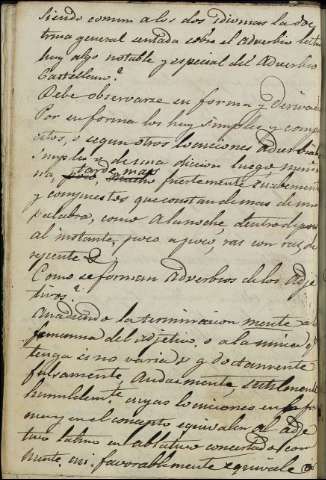 Siendo comun a los dos Idiomas la doc
trina general sentada sobre el adverbio
hay algo notable y especial del Adverbio
Castellano?
Debe observarse su forma y
Por su forma los hay simples y compu
estos, o segun otros locuciones adverbia
Simples de una dicion luego nun
ca, tarde mas fuertemente
y compuestos que constan de mas de una
palabra, como A la noche, dentro de poco
al instante, poco a poco, ras con ras, de
repente &
Como se forman Adverbios de los Adje
tivos?
Anadiendo la terminacion mente a la
femenina del adjetivo, o a la unica q
tenga si no varia v g doctamente
falsamente, Audazmente, utilmente
humildemte cuyas locuciones en la for
ma y en el concepto equivalen al adje
tivo latino en ablativo concertado con
mente. asi. favorablemente equivale a